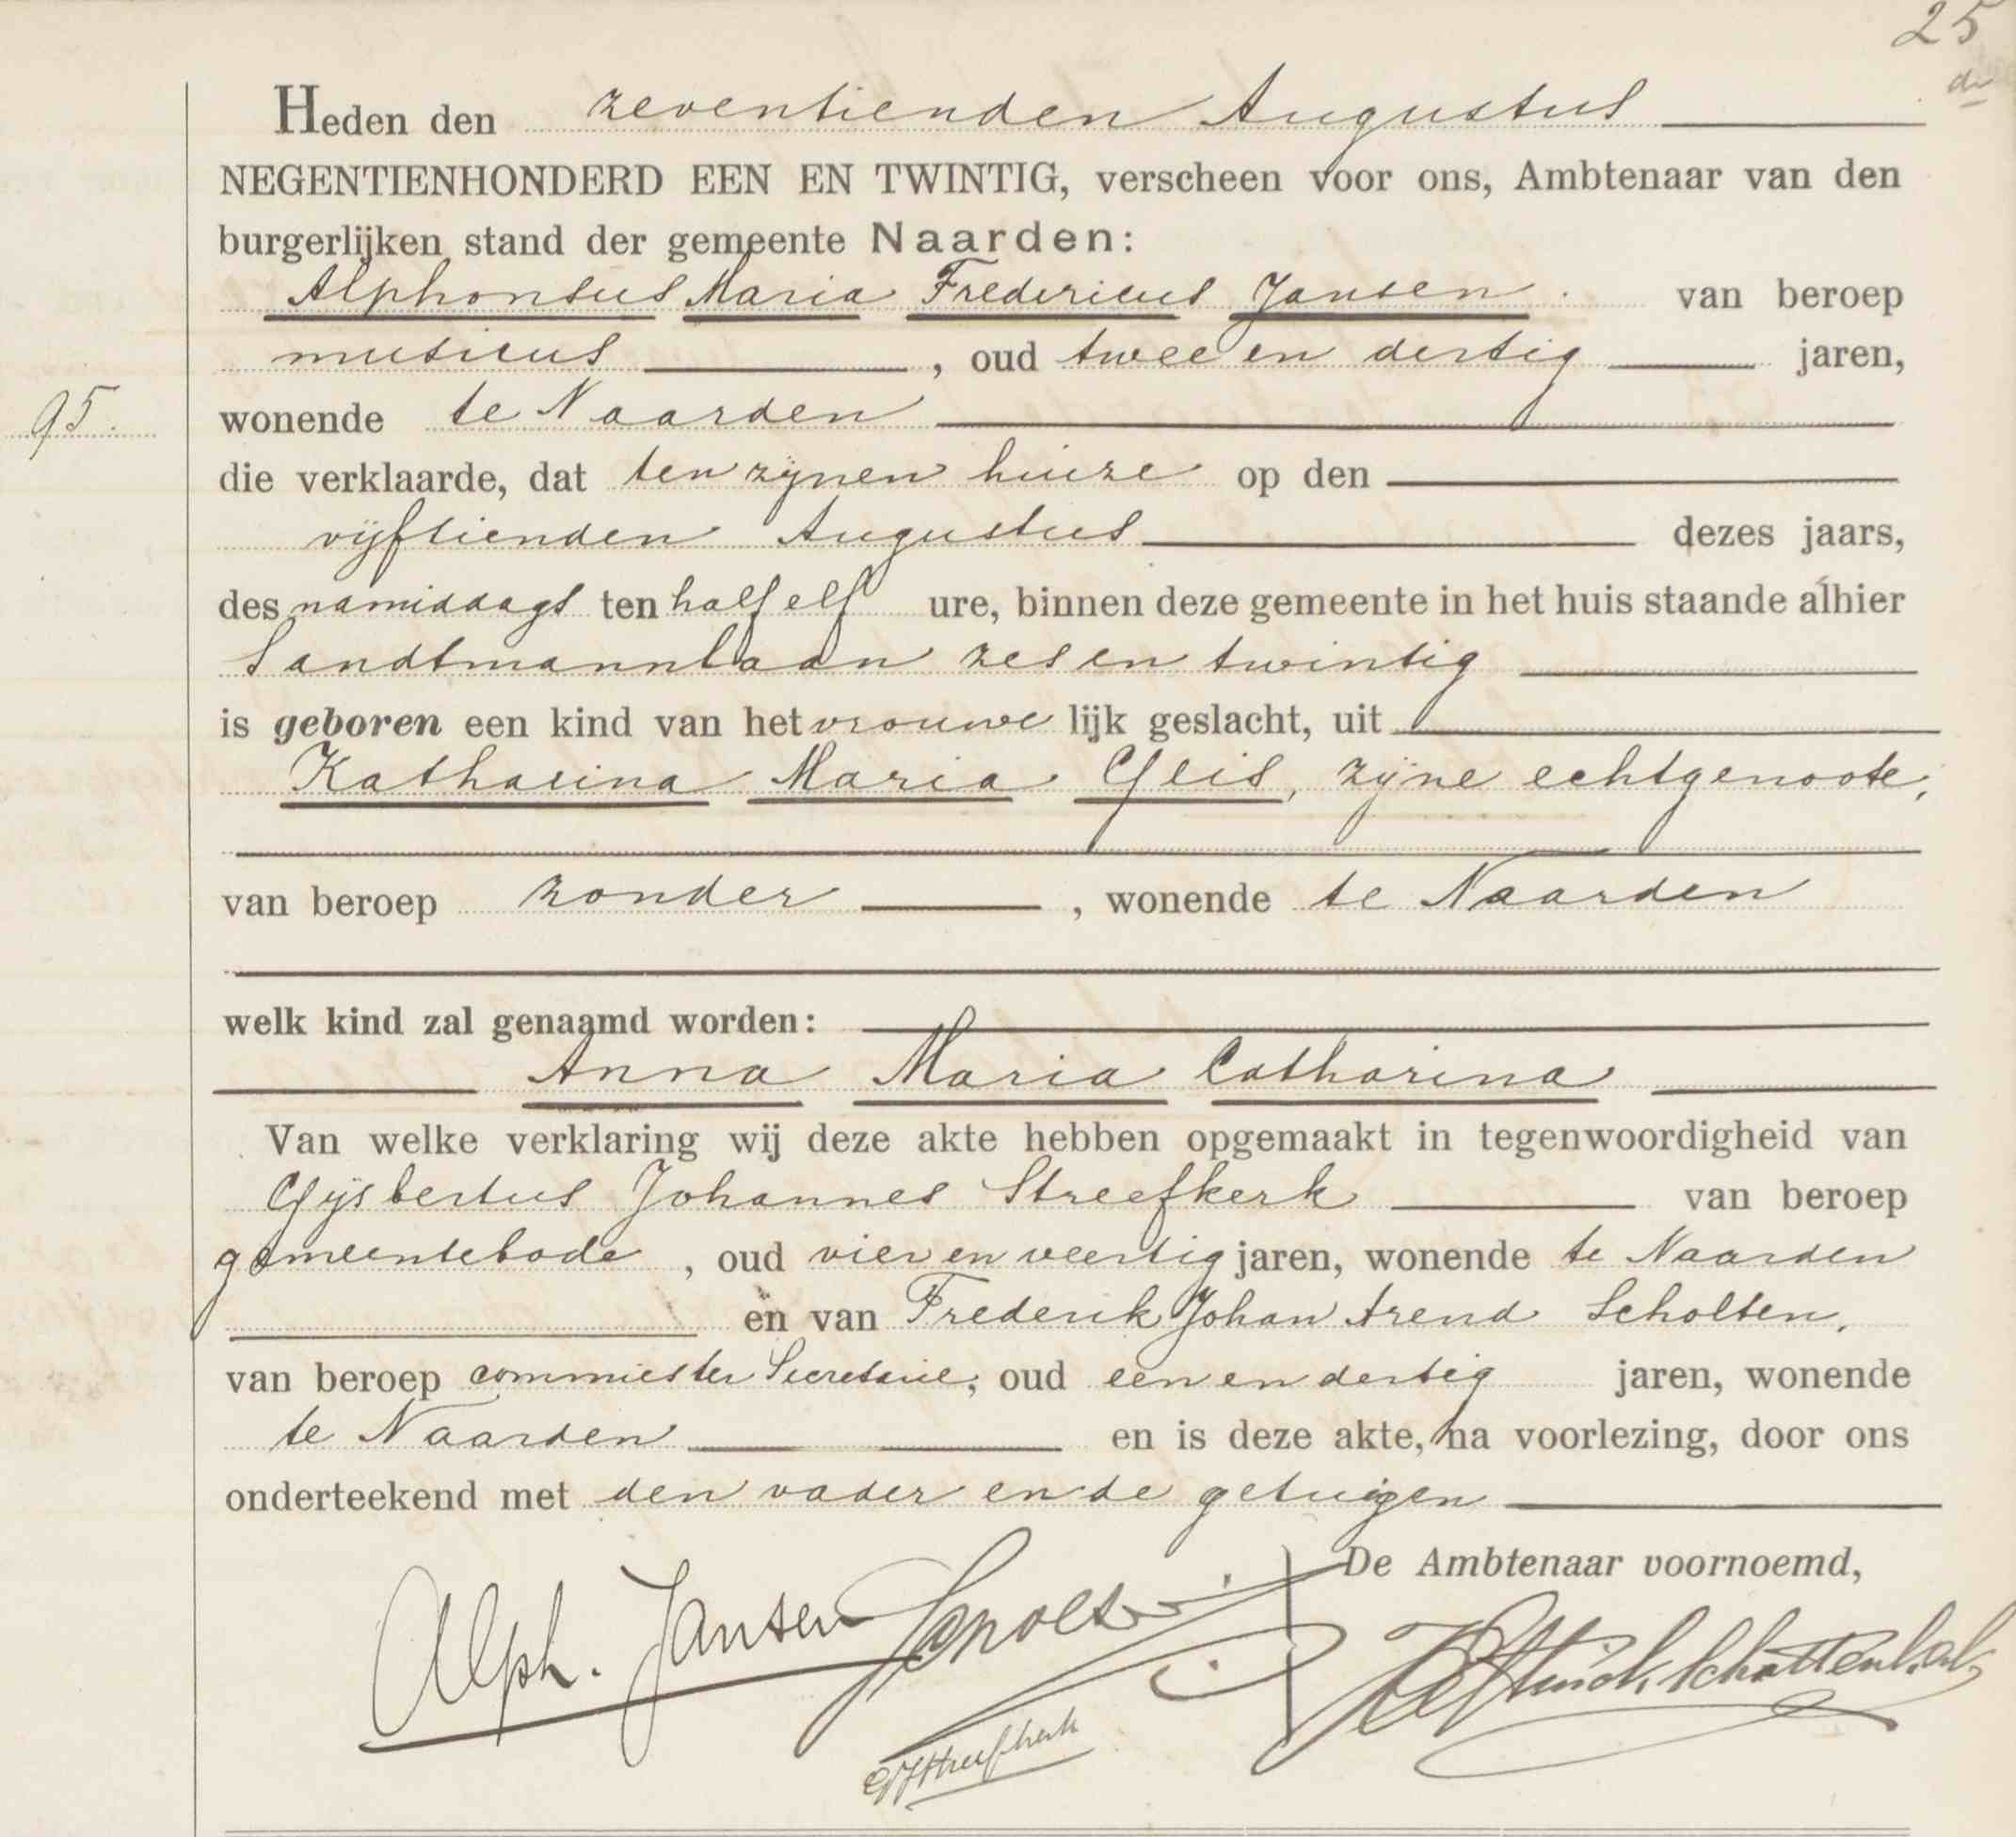 25
Heden den zeventienden Augustus
NEGENTIENHONDERD EEN EN TWINTIG, verscheen voor ons, Ambtenaar van den
burgerlijken stand der gemeente Naarden:
Alphonsus Maria Fredericus Jansen van beroep
musicus, oud twee en dertig jaren,
95.
wonende te Naarden
die verklaarde, dat ten zijnen huize op den
vijftienden Augustus dezes jaars,
des namiddags ten half elf ure, binnen deze gemeente in het huis staande alhier
Sandtmannlaan zes en twintig
is geboren een kind van het vrouwelijk geslacht, uit
Katharina Maria Geis, zijne echtgenoote,
van beroep zonder, wonende te Naarden
welk kind zal genaamd worden:
Anna Maria Catharina
Van welke verklaring wij deze akte hebben opgemaakt in tegenwoordigheid van
Gijsbertus Johannes Streefkerk van beroep
gemeentebode, oud vier en veertig jaren, wonende te Naarden
en van Frederik Johan Arend Scholten,
van beroep commies ter Secretarie, oud een en dertig jaren, wonende
te Naarden en is deze akte, na voorlezing, door ons
onderteekend met den vader en de getuigen
De Ambtenaar voornoemd,
Alph. Jansen Scholten
GJStreefkerk